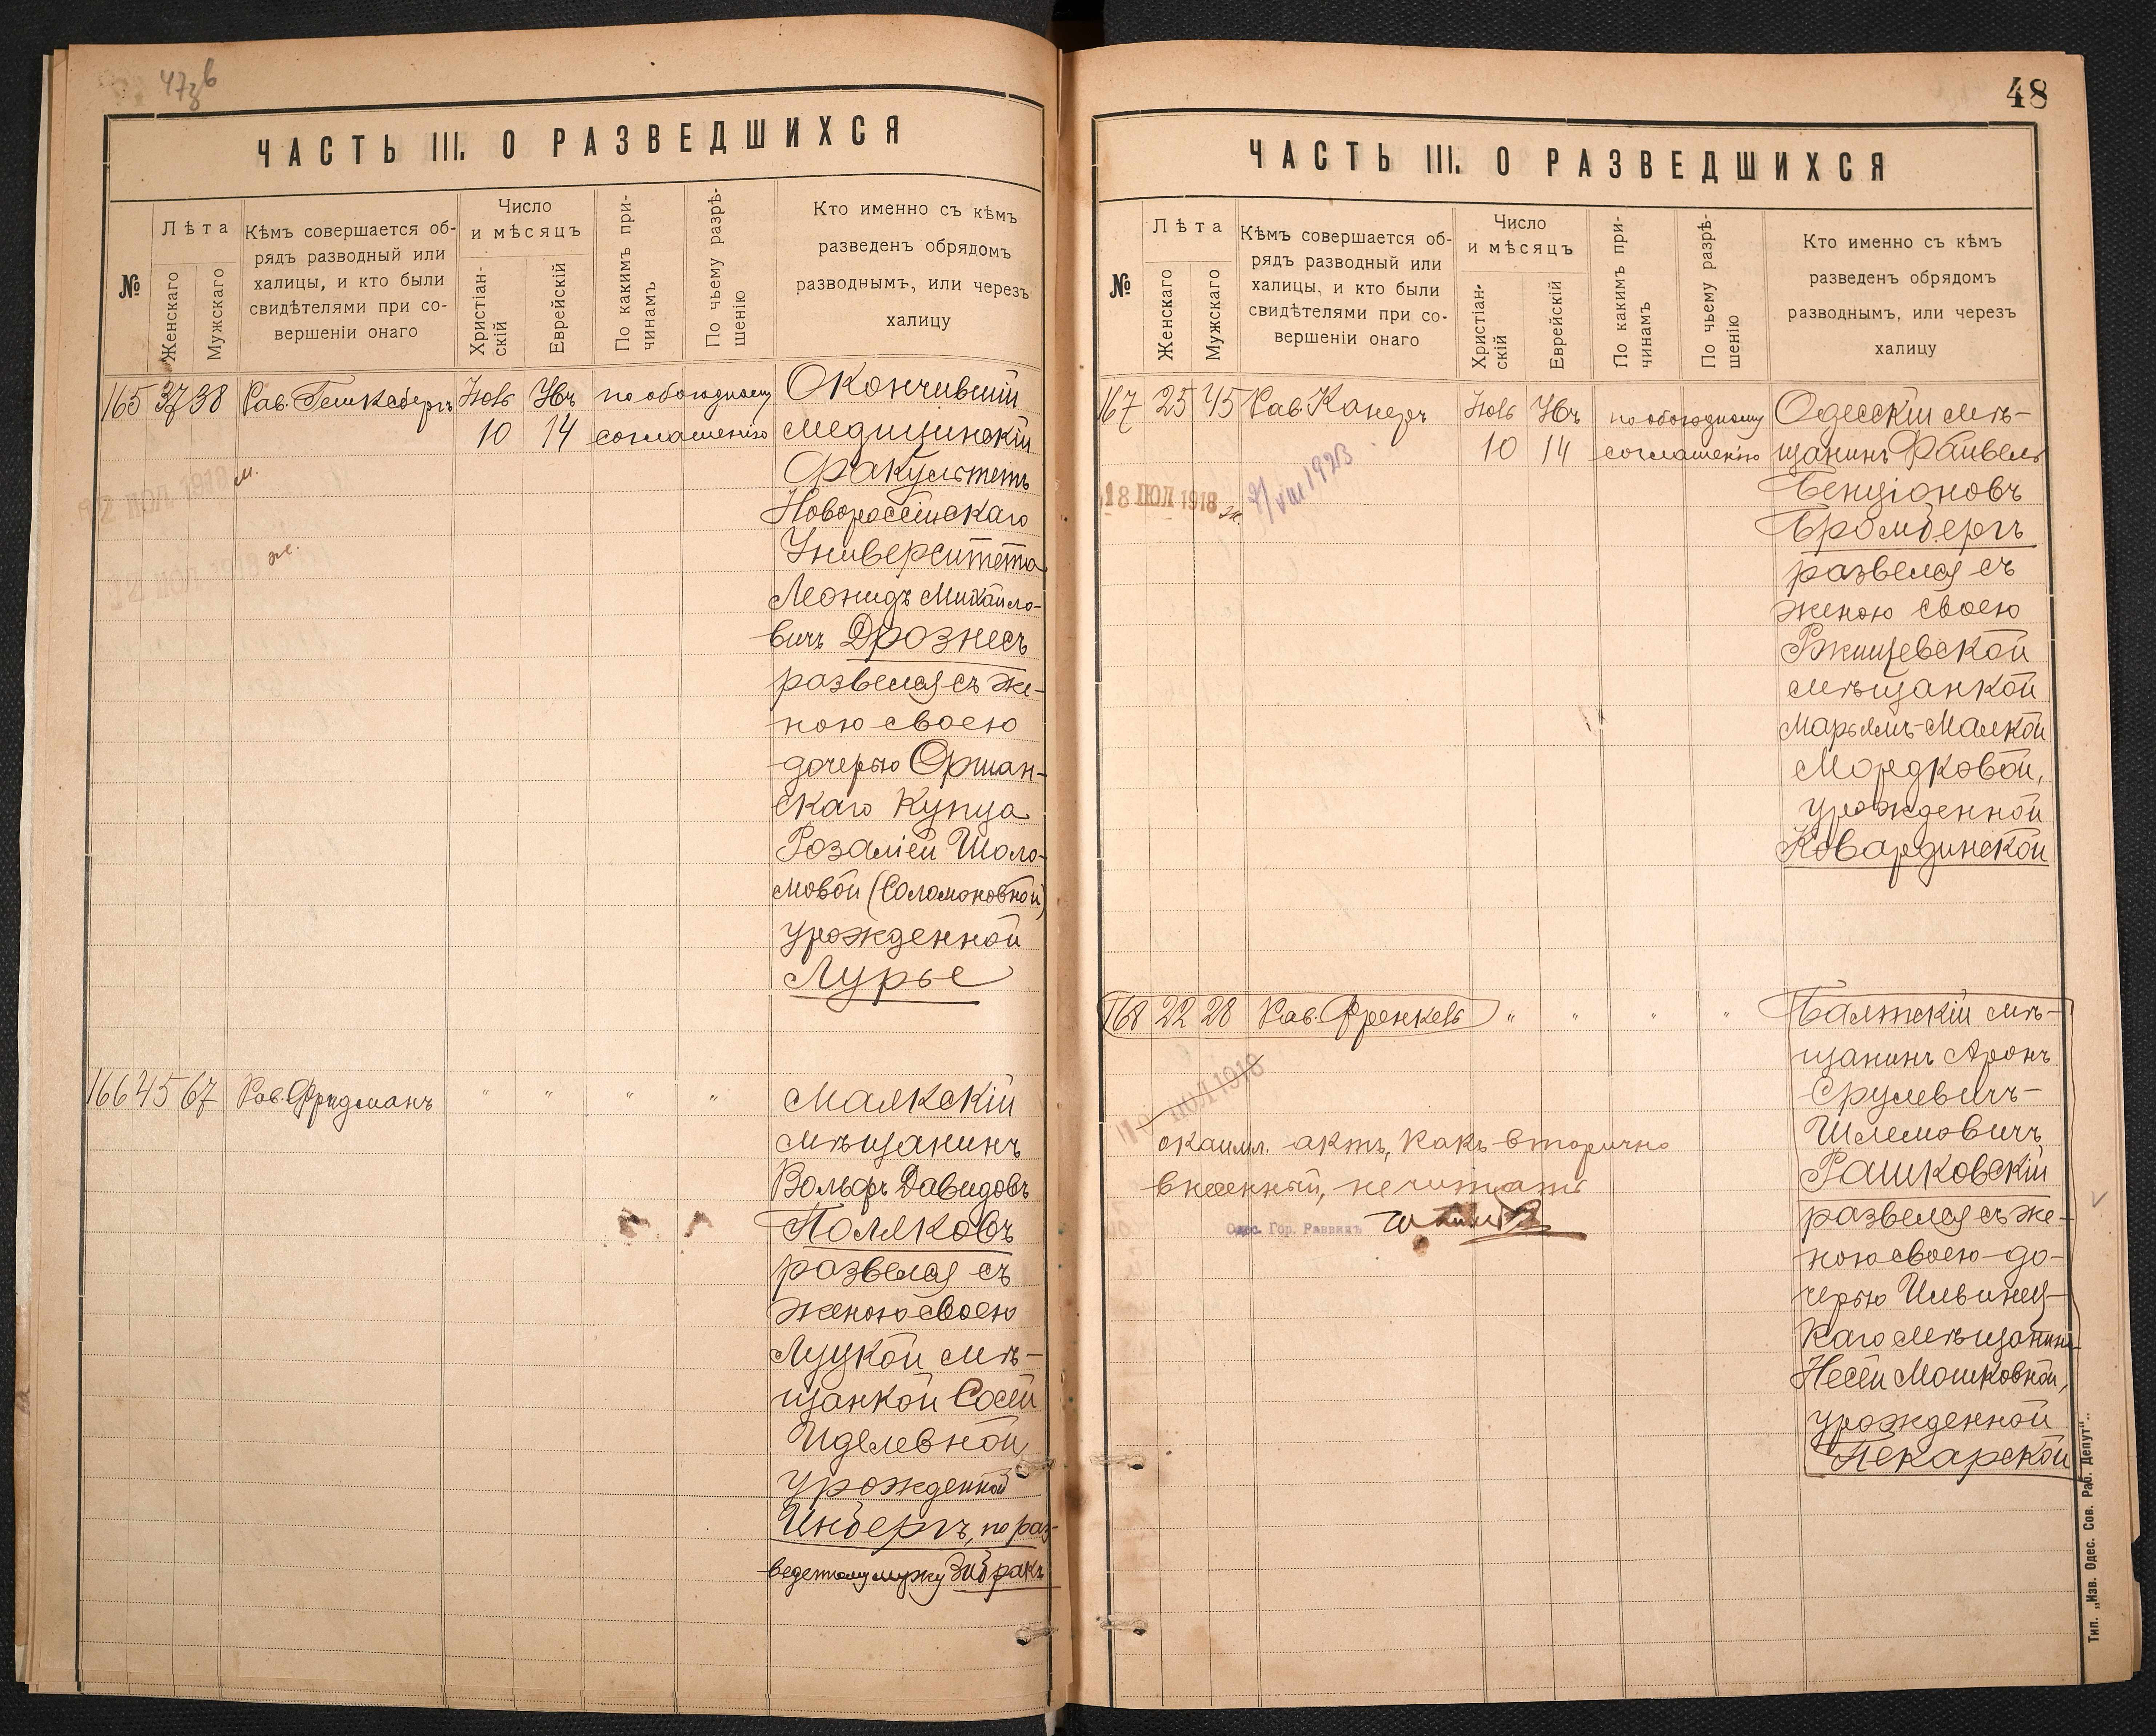 ЧАСТЬ III. О РАЗВЕДШИХСЯ
№
Лѣта
Женскаго
Мужскаго
Кѣмъ совершается об-
рядъ разводный или
халицы, и кто были
свидѣтелями при со-
вершеніи онаго
Число
и мѣсяцъ
Христіан-
скій
Еврейскій
По какимъ при-
чинамъ
По чьему разрѣ-
шенію
Кто именно съ кѣмъ
разведенъ обрядомъ
разводнымъ, или черезъ
халицу
165 37 38 Рав. Іюль по обоюдному Окончившій
10 14 соглашенію Медицинскій
Факультетъ
Новороссійскаго
Университета
Леонидъ Михайло-
вичъ Дрознесъ
развелся съ же-
ною своею
дочерью Оршан-
скаго Купца
Розаліей Шоло-
мовой (Соломоновной)
урожденной
Лурье
166 45 67 Рав. Фридманъ " " " " 
мѣщанинъ
Вольфъ Давидовъ
Поляковъ
развелся съ
женою своею
Луцкой мѣ-
щанкой Сосей
Иделевной,
урожденной
Инбергъ, по раз-
веденному мужу
48
ЧАСТЬ III. О РАЗВЕДШИХСЯ
№
Лѣта
Женскаго
Мужскаго
Кѣмъ совершается об-
рядъ разводный или
халицы, и кто были
свидѣтелями при со-
вершеніи онаго
Число
и мѣсяцъ
Христіан-
скій
Еврейскій
По какимъ при-
чинамъ
По чьему разрѣ-
шенію
Кто именно съ кѣмъ
разведенъ обрядомъ
разводнымъ, или черезъ
халицу
167 25 45 Рав. Канеръ Іюль по обоюдному Одесскій мѣ-
10 14 соглашенію щанинъ Файвель
18 ІЮЛ 1918
Бенціоновъ
Бромбергъ
развелся съ
женою своею
Ржищевской
мѣщанкой
Марьямъ-Малкой
Мордковой,
урожденной
Ковардинской
168 22 28 Рав. Френкель " " " " Балтскій мѣ-
щанинъ Аронъ
Срулевичъ-
Шлемовичъ
Рашковскій
развелся съ же-
ною своею-до-
черью
каго мѣщанина
Несей Мошковной,
урожденной
Пекарской
ІЮЛ 1918
актъ, какъ вторично
внесенный, не читать
Одес. Гор. Раввинъ
Тип. „Изв. Одес. Сов. Раб. Депут“.